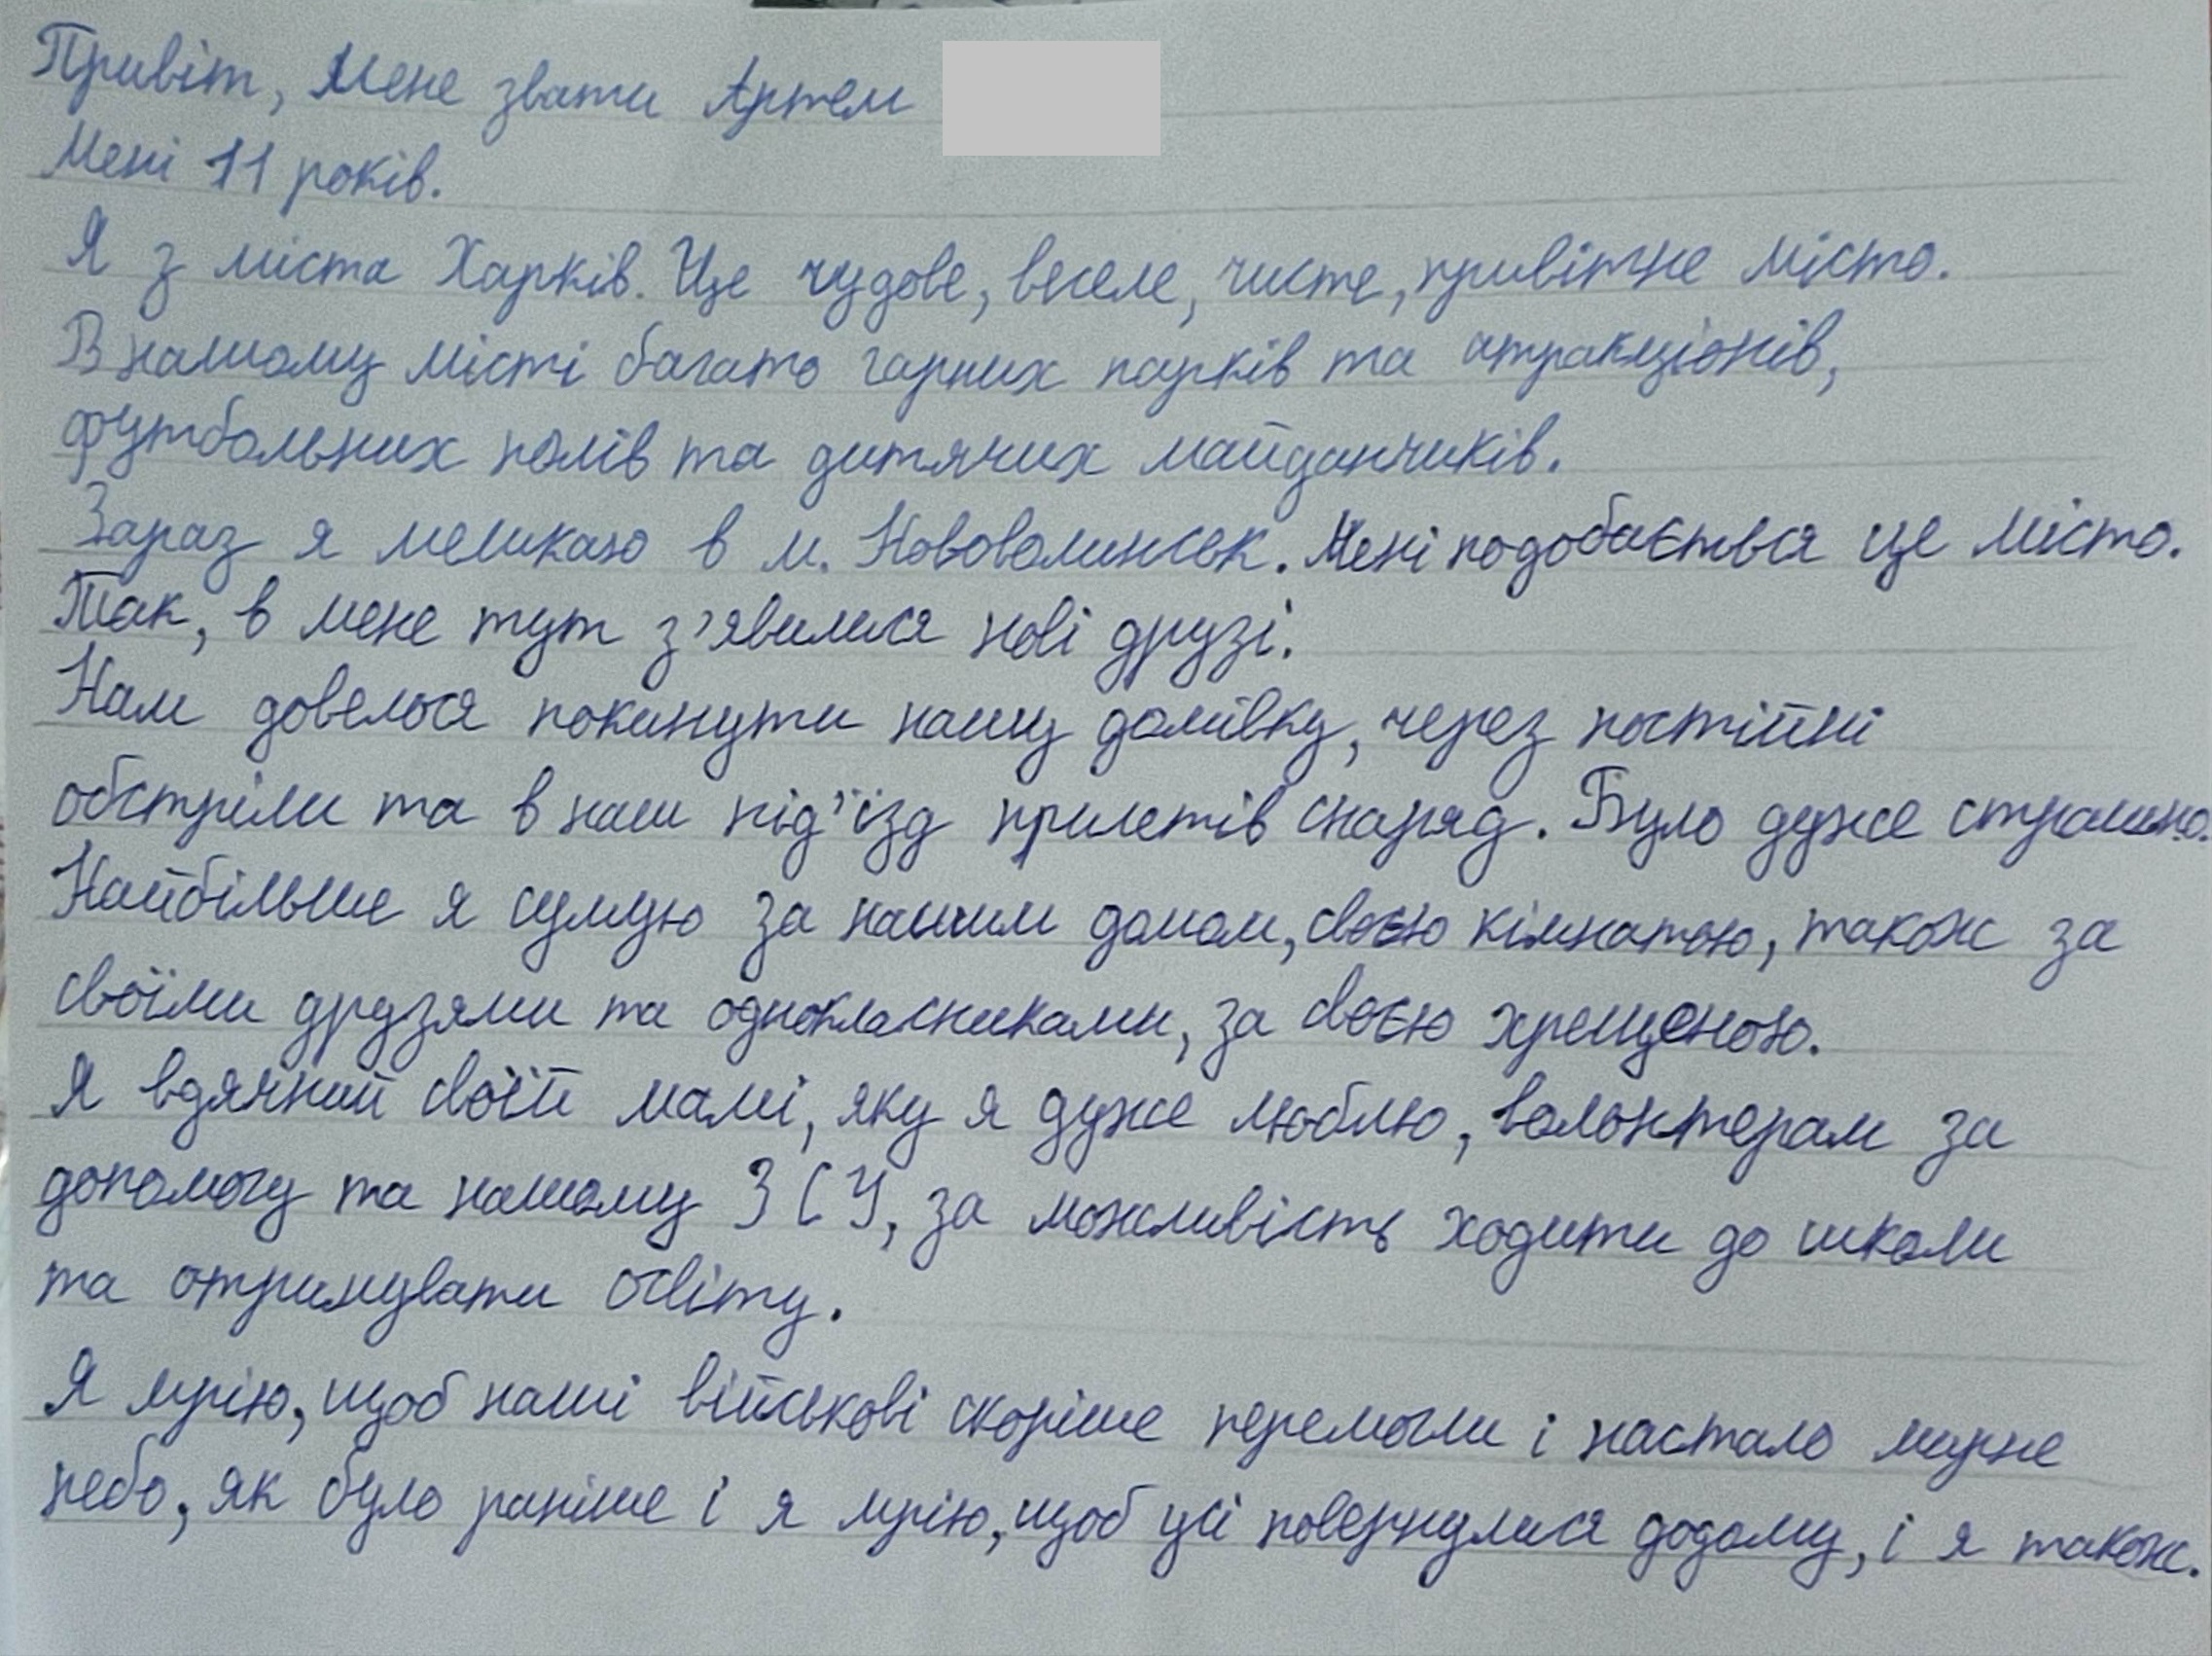 Привіт, Мене звати Артем
Мені 11 років.
Я з міста Харків. Це чудове, веселе, чисте, привітне місто.
В нашому місті багато гарних парків та атракціонів,
футбольних полів та дитячих майданчиків.
Зараз я мешкаю в м. Нововолинськ. Мені подобається це місто.
Так, в мене тут з'явилися нові друзі.
Нам довелося покинути нашу домівку, через постійні
обстріли та в наш під'їзд прилетів снаряд. Було дуже страшно.
Найбільше я сумую за нашим домом, своєю кімнатою, також за
своїми друзями та однокласниками, за своєю хрещеною.
Я вдячний своїй мамі, яку я дуже люблю, волонтерам за
допомогу та нашому ЗСУ, за можливість ходити до школи
та отримувати освіту.
Я мрію, щоб наші військові скоріше перемогли і настало мирне
небо, як було раніше і я мрію, щоб усі повернулися додому, і я також.